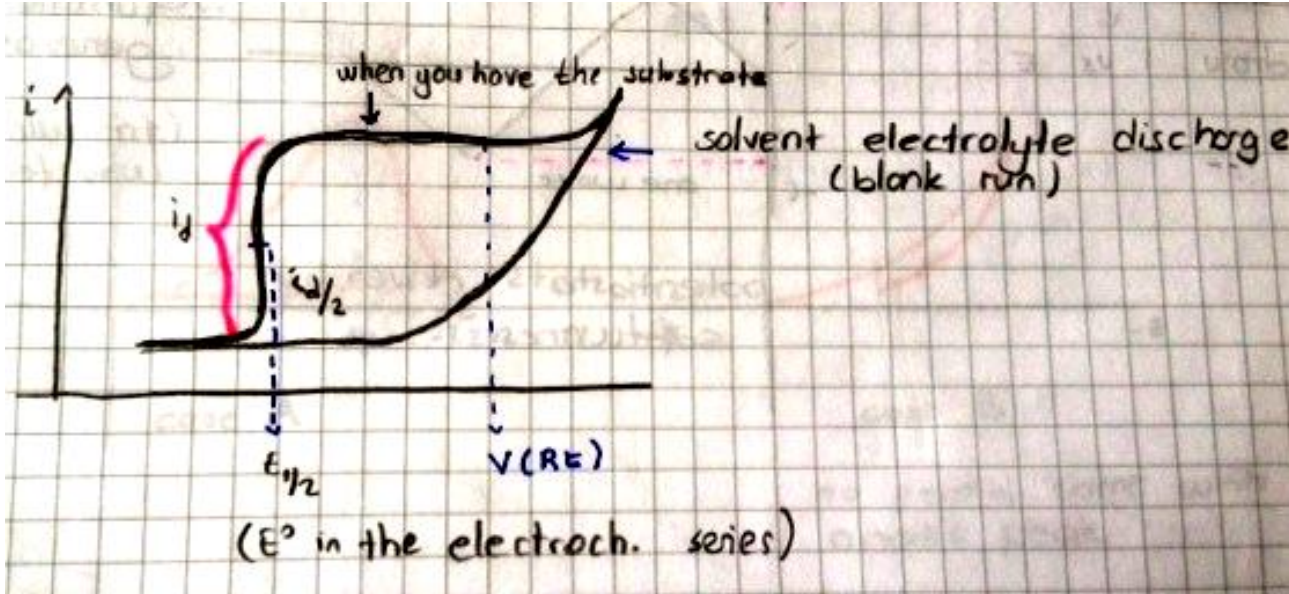 when you have the substrate
i
solvent electrolyte discharge
(blank run)
id
id/2
E1/2
V(RE)
(E° in the electroch. series)